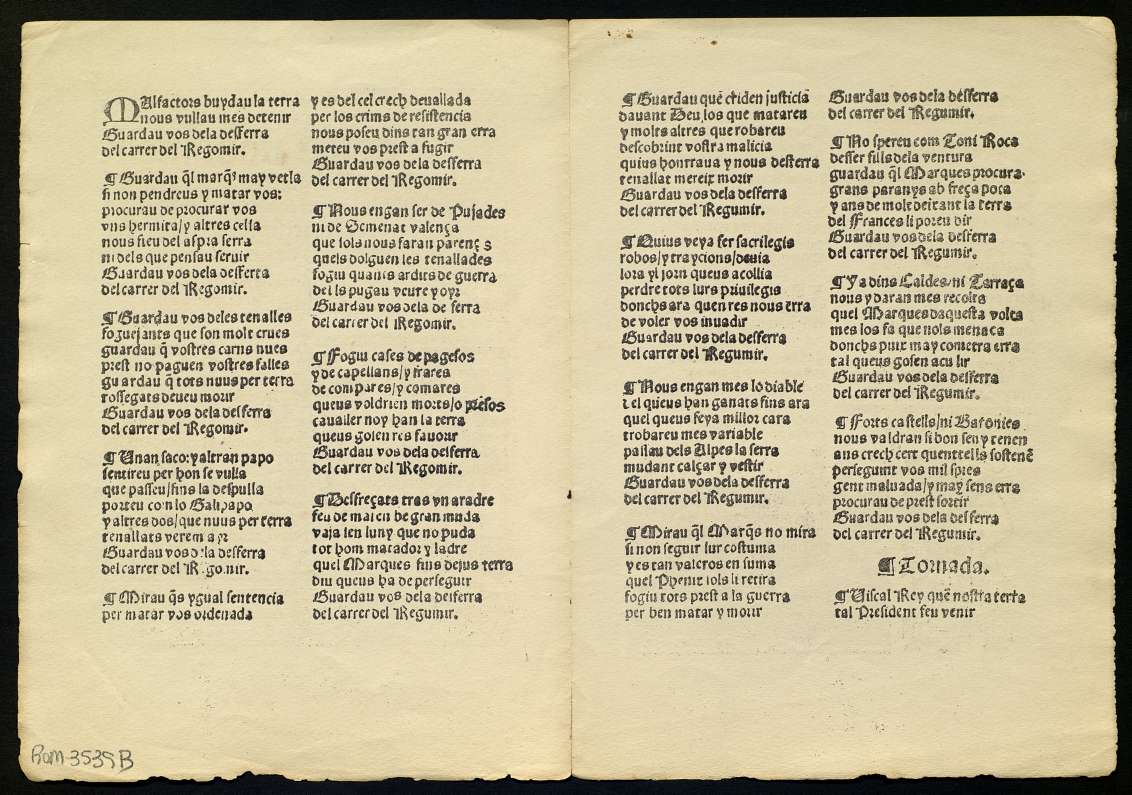 MAlfactors buydau la terra
nous vullau mes detenir
Guardau vos dela desferra
del carrer del Regomir.
¶ Guardau q̄l marq̄s may vetla
si non pendreus y matar vos:
procurau de procurar vos
vns hermita/y altres cella
nous fieu del aspra serra
ni dels que pensau seruir
Guardau vos dela desferra
del carrer del Regomir.
¶ Guardau vos deles tenalles
foguejants que son molt crues
guardau q̄ vostres carns nues
prest no paguen vostres falles
guardau q̄ tots nuus per terra
rossegats deueu morir
Guardau vos dela desferra
del carrer del Regomir.
¶ Vnan saco: y altran papo
sentireu per hon se vulla
que passeu/fins la despulla
porteu con lo Galipapo
y altres dos/que nuus per terra
tenallats verem
Guardau vos dela desferra
del carrer del Regomir.
¶ Mirau q̄s ygual sentencia
per matar vos ordenada
y es del cel crech deuallada
per los crims de resistencia
nous poseu dins tan gran erra
meteu vos prest a fugir
Guardau vos dela desferra
del carrer del Regomir.
¶ Nous engan ser de Pujades
ni de Semenat valença
que sols nous faran parenç s
quels dolguen les tenallades
fogiu quants ardits de guerra
dells pugau veure y oyr
Guardau vos dela de ferra
del carrer del Regomir.
¶ Fogiu cases de pagesos
y de capellans/y frares
de compares/y comares
queus voldrien morts/o presos
caualler noy han la terra
queus gosen res fauorir
Guardau vos dela desferra
del carrer del Regomir.
¶ Desfreçats tras vn aradre
feu de be gran muda
vaja len luny que no puda
tot hom matador y ladre
quel Marques fins dejus terra
diu queus ha de perseguir
Guardau vos dela desferra
del carrer del Regumir.
¶ Guardau quē criden justicia
dauant Deu los que matareu
y molts altres que robareu
descobrint vostra malicia
quius honrraua y nous desterra
tenallat mereix morir
Guardau vos dela desferra
del carrer del Regumir.
¶ Quius veya fer sacrilegis
robos/y traycions/deuia
lora yl jorn queus acollia
perdre tots lurs priuilegis
donchs ara quen res nous erra
de voler vos inuadir
Guardau vos dela desferra
del carrer del Regumir.
¶ Nous engan mes lo diable
el queus han ganats fins ara
quel queus feya millor cara
trobareu mes variable
passau dels Alpes la serra
mudant calçar y vestir
Guardau vos dela desferra
del carrer del Regumir.
¶ Mirau q̄l Marq̄s no mira
si non seguir lur costuma
y es tan valeros en suma
quel Phenix sols li retira
fogiu tots prest a la guerra
per ben matar y morir
Guardau vos dela desferra
del carrer del Regumir.
¶ No spereu com Toni Roca
desser fills dela ventura
guardau q̄l Marques procura
grans paranys ab freça poca
y ans de molt deitant la terra
del Frances li poreu dir
Guardau vos dela desferra
del carrer del Regumir.
¶ Ya dins Caldes/ni Tarraça
nous y daran mes recolta
quel Marques daquesta volta
mes los fa que nols menaça
donchs puix may cometra erra
tal queus gosen acullir
Guardau vos dela desferra
del carrer del Regumir.
¶ Forts castells/ni Baronies
nous valdran si bon sen y tenen
ans crech cert quen tells sostenē
perseguint vos mil spies
gent maluada/y may sens erra
procurau de prest sortir
Guardau vos dela desferra
del carrer del Regumir.
¶ Tornada.
¶ Viscal Rey quē nostra terra
tal President feu venir
Rom-3535 B